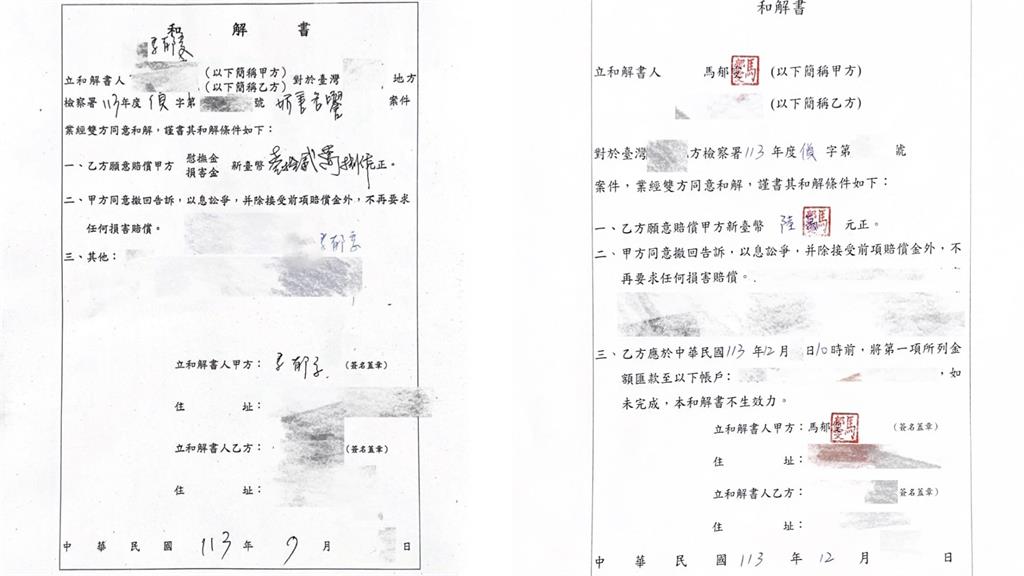 和解書
馬郁雯
立和解書人
(以下簡稱甲方)
(以下簡稱乙方)
對於臺灣 地方
檢察署113年度偵字第 號 妨害名譽 案件
業經雙方同意和解,謹書其和解條件如下:
一、乙方願意賠償甲方 慰撫金
損害金 新臺幣 正。
二、甲方同意撤回告訴,以息訟爭,并除接受前項賠償金外,不再要求
任何損害賠償。
馬郁雯
三、其他:
立和解書人甲方:馬郁雯 (簽名蓋章)
住 址:
立和解書人乙方: (簽名蓋章)
住 址:
中華民國113年9月 日
和解書
立和解書人 馬郁雯 (以下簡稱甲方)
(以下簡稱乙方)
對於臺灣 方檢察署113年度偵字第 號
案件,業經雙方同意和解,謹書其和解條件如下:
一、乙方願意賠償甲方新臺幣 陸萬 元正。
二、甲方同意撤回告訴,以息訟爭,并除接受前項賠償金外,不
再要求任何損害賠償。
三、乙方應於中華民國113年12月 日10時前,將第一項所列金
額匯款至以下帳戶: ,如
未完成,本和解書不生效力。
立和解書人甲方:馬郁雯 (簽名蓋章)
住 址:
立和解書人乙方: 簽名蓋章)
住 址:
中華民國113年12月 日